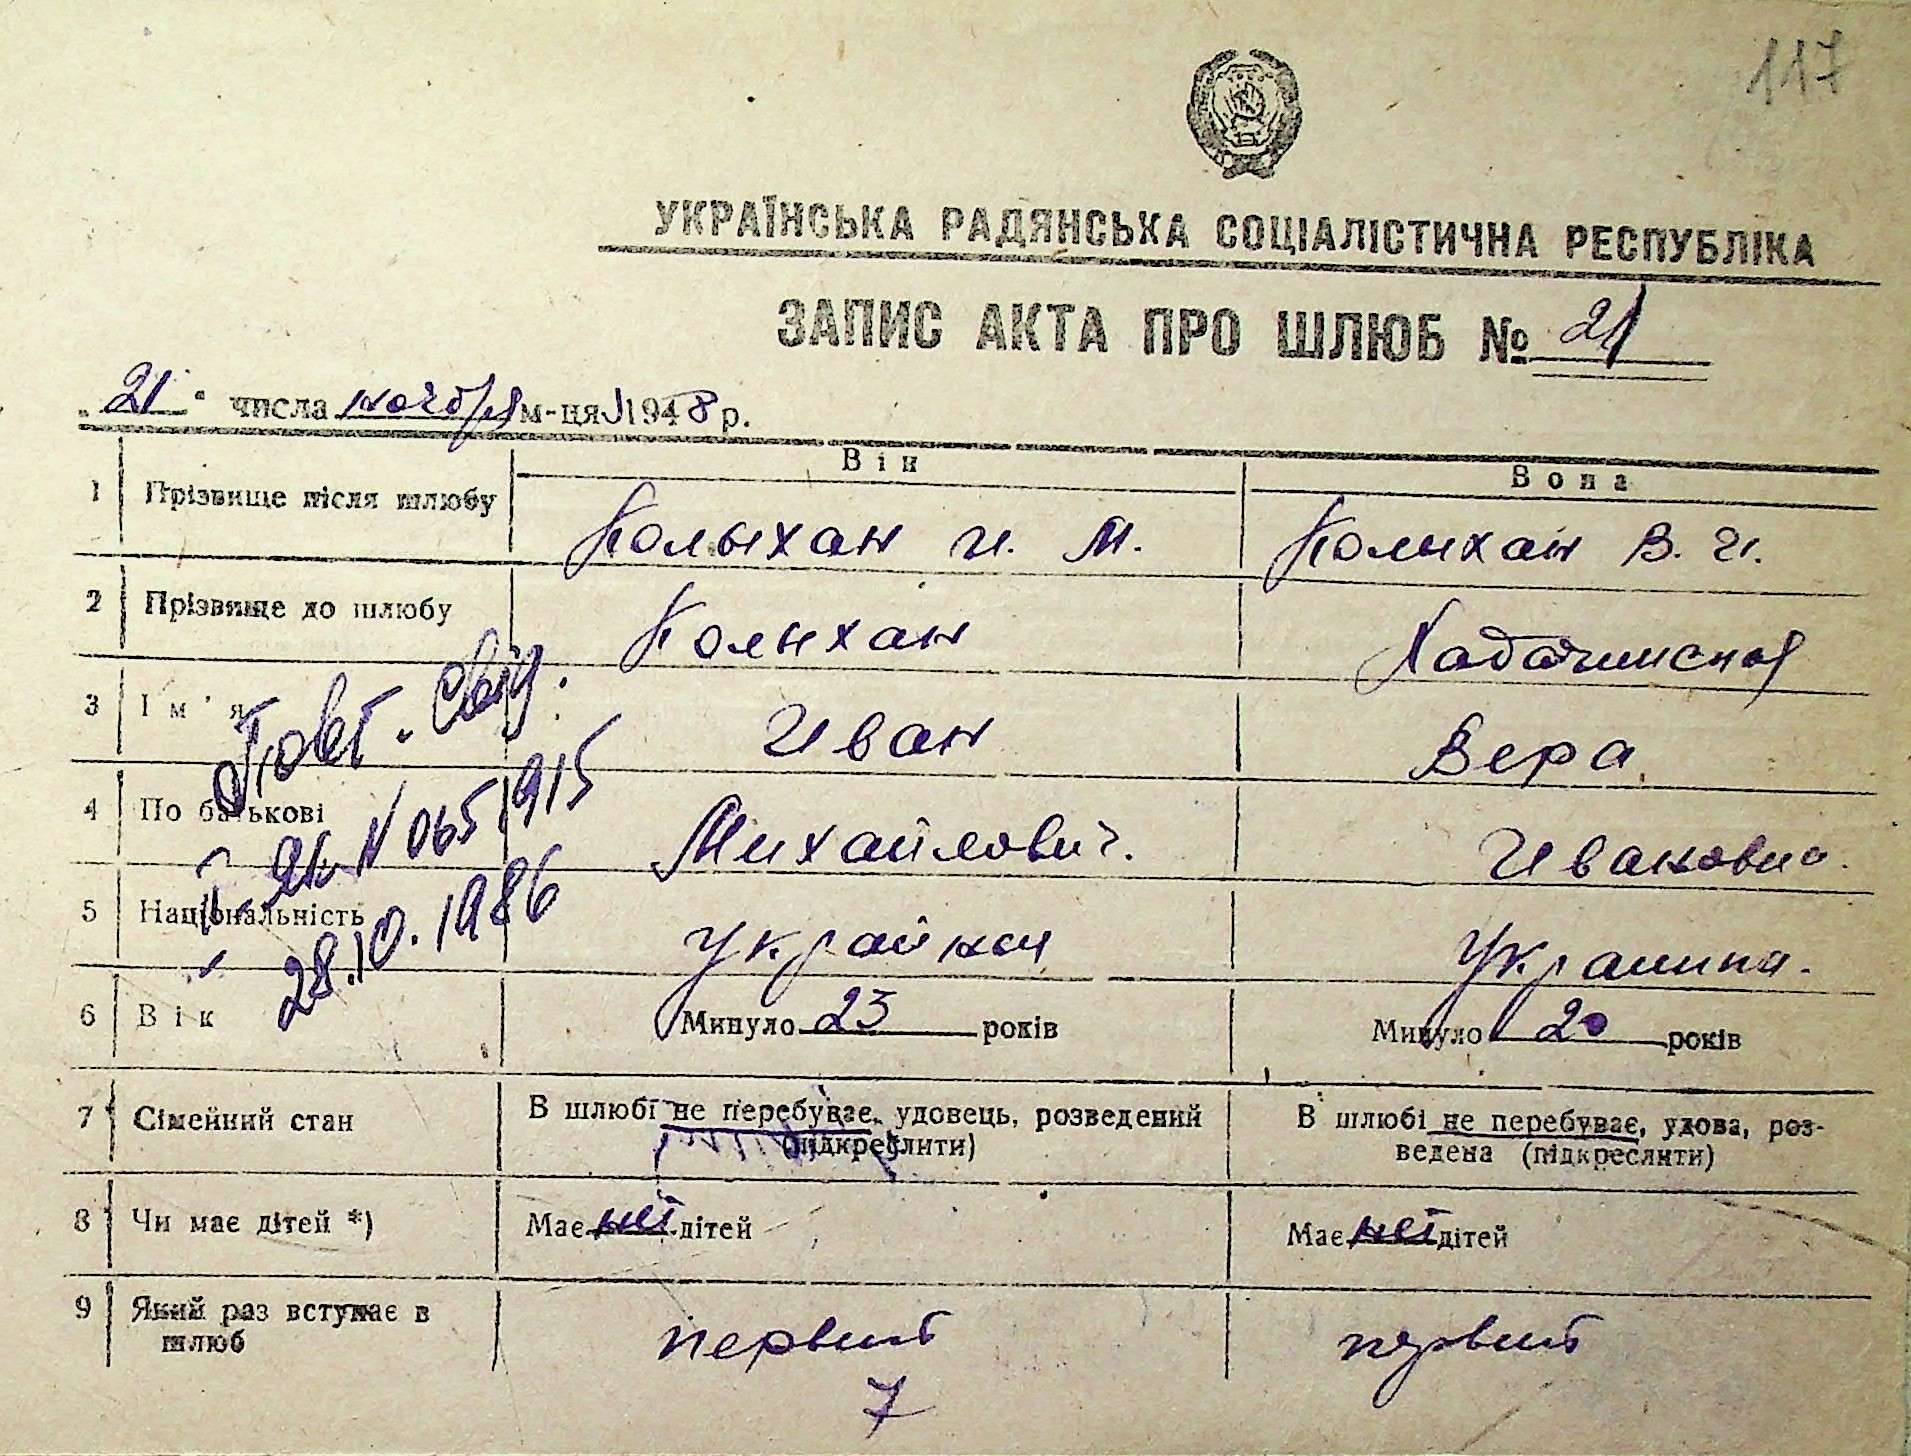 117
УКРАЇНСЬКА РАДЯНСЬКА СОЦІАЛІСТИЧНА РЕСПУБЛІКА
ЗАПИС АКТА ПРО ШЛЮБ № 21
"21" числа ноября м-ця 1948 р.
Він Вона
1 Прізвище після шлюбу Колыхан И. М. Колыхан В. И.
2 Прізвище до шлюбу Колыхан
3 Ім'я Иван Вера
Повт. свід.
4 По батькові Михайлович. Ивановна.
II-ЯК N 0651915
5 Національність Украйнец Украинка.
28.10.1986
6 Вік Минуло 23 років Минуло 20 років
7 Сімейний стан В шлюбі не перебуває, удовець, розведений (підкреслити) В шлюбі не перебуває, удова, роз-
ведена (підкреслити)
8 Чи має дітей *) Має нет дітей Має нет дітей
9 Який раз вступає в шлюб первий первий
7